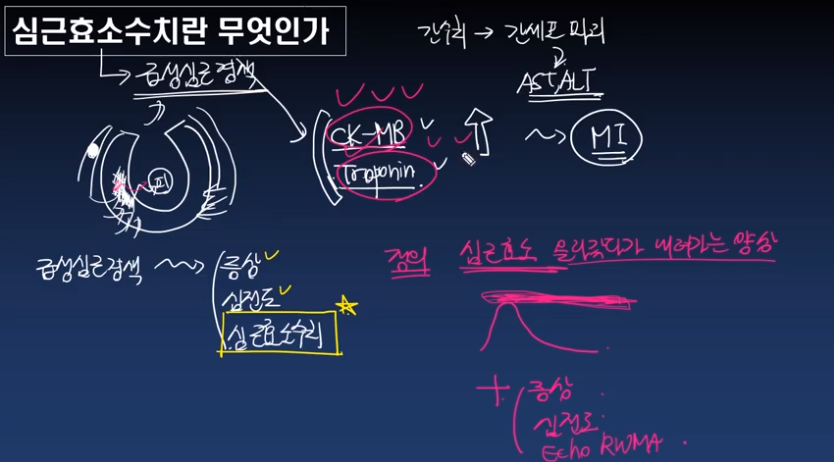 심근효소수치란 무엇인가
간수치 → 간세포 파괴
AST, ALT
→ 급성심근경색
CK-MB
Troponin
MI
피
급성심근경색
증상
심전도
심근효소수치
정의 심근효소 올라갔다가 내려가는 양상
+ 증상
심전도
Echo RWMA